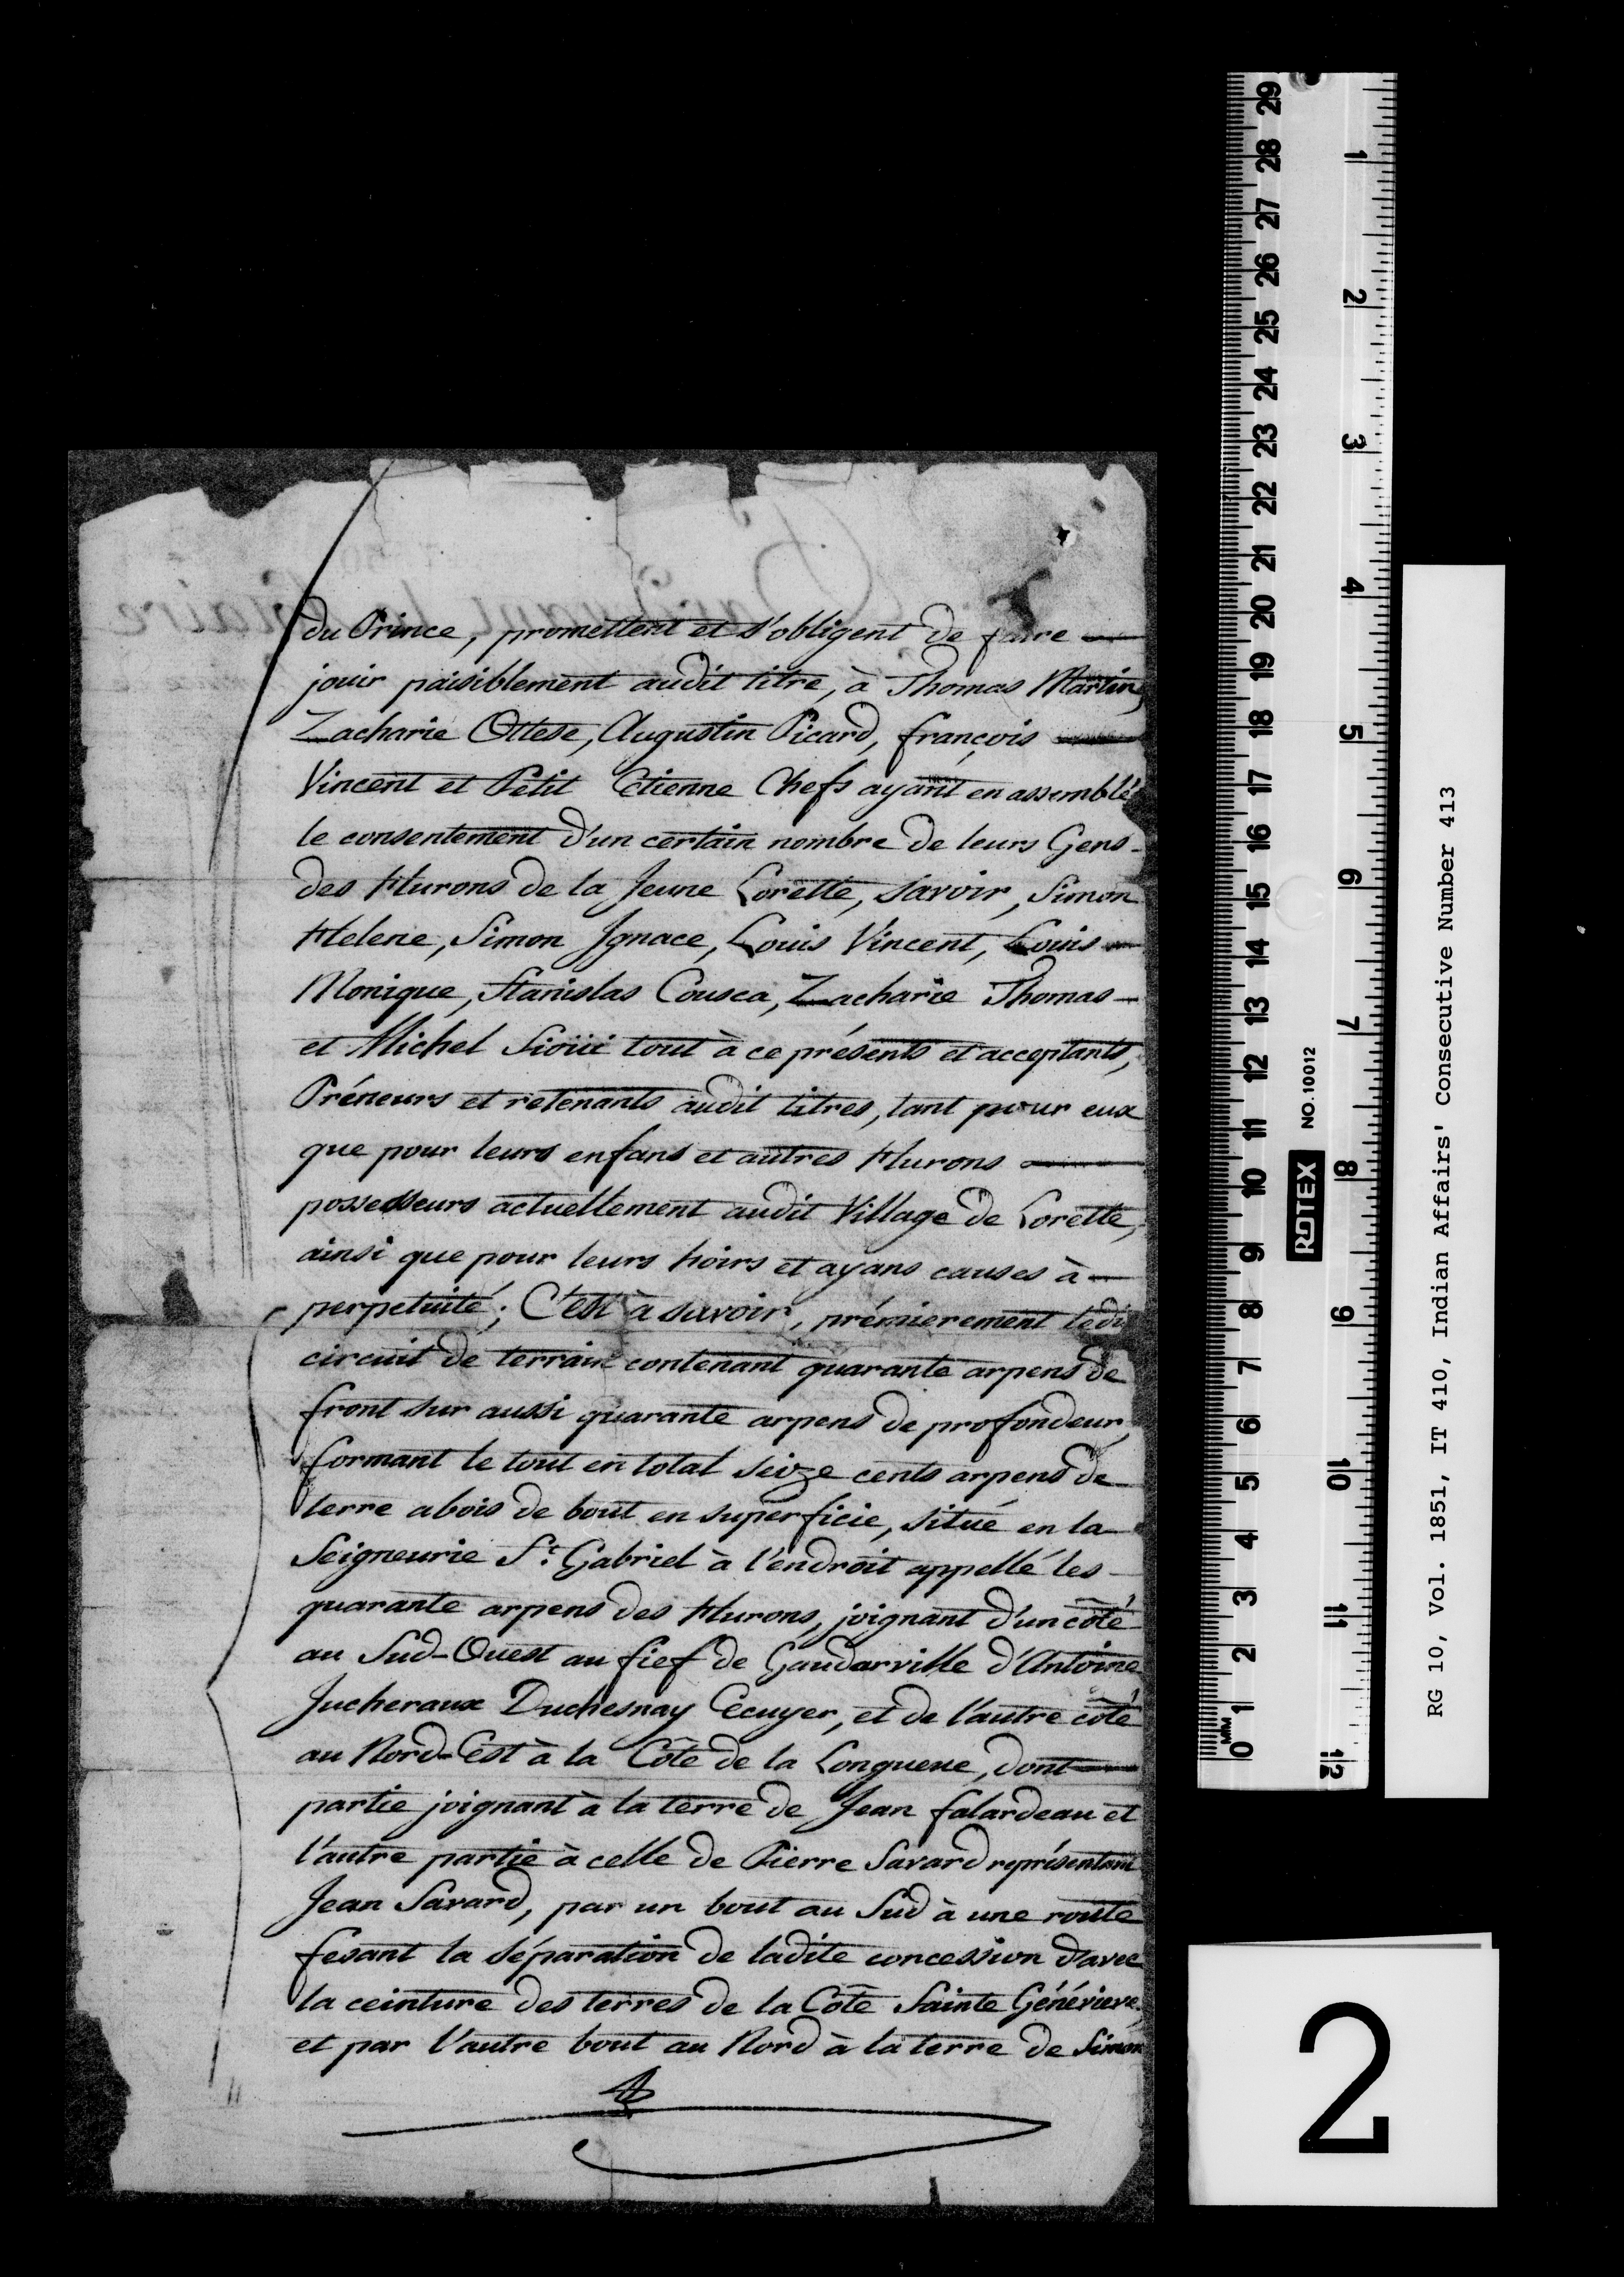 du Prince, promettent et s'obligent de faire —
jouir paisiblement audit titre, à Thomas Martin,
Zacharie Ottese, Augustin Picard, françois —
Vincent et Petit Etienne Chefs ayant en assemblée
le consentement d'un certain nombre de leurs Gens-
des Hurons de la Jeune Lorette, savoir, Simon
Helene, Simon Ignace, Louis Vincent, Louis —
Monique, Stanislas Cousca, Zacharie Thomas —
et Michel Sioüi tout à ce présents et acceptants,
Préneurs et retenants audit titres, tant pour eux
que pour leurs enfans et autres Hurons —
possesseurs actuellement audit Village de Lorette,
ainsi que pour leurs hoirs et ayans causes à —
perpetuité; C'est à savoir, prémierement ledi
circuit de terrain contenant quarante arpens de
front sur aussi quarante arpens de profondeur,
formant le tout en total seize cents arpens de
terre abois de bout en superficie, situé en la —
Seigneurie St. Gabriel à l'endroit appellé les —
quarante arpens des Hurons, joignant d'un côté
au Sud-Ouest au fief de Gaudarville d'Antoine
Jucheraux Duchesnay Ecuyer, et de l'autre côté
au Nord-Est à la Côte de la Longueue, dont —
partie joignant à la terre de Jean falardeau et
l'autre partie à celle de Pierre Savard représentant
Jean Savard, par un bout au Sud à une route
fesant la séparation de ladite concession d'avec
la ceinture des terres de la Côte Sainte Généviève,
et par l'autre bout au Nord à la terre de Simon
RG 10, Vol. 1851, IT 410, Indian Affairs' Consecutive Number 413
ROTEX NO. 10012
MM 0 1 2 3 4 5 6 7 8 9 10 11 12 13 14 15 16 17 18 19 20 21 22 23 24 25 26 27 28 29
1 2 3 4 5 6 7 8 9 10 11 12
2